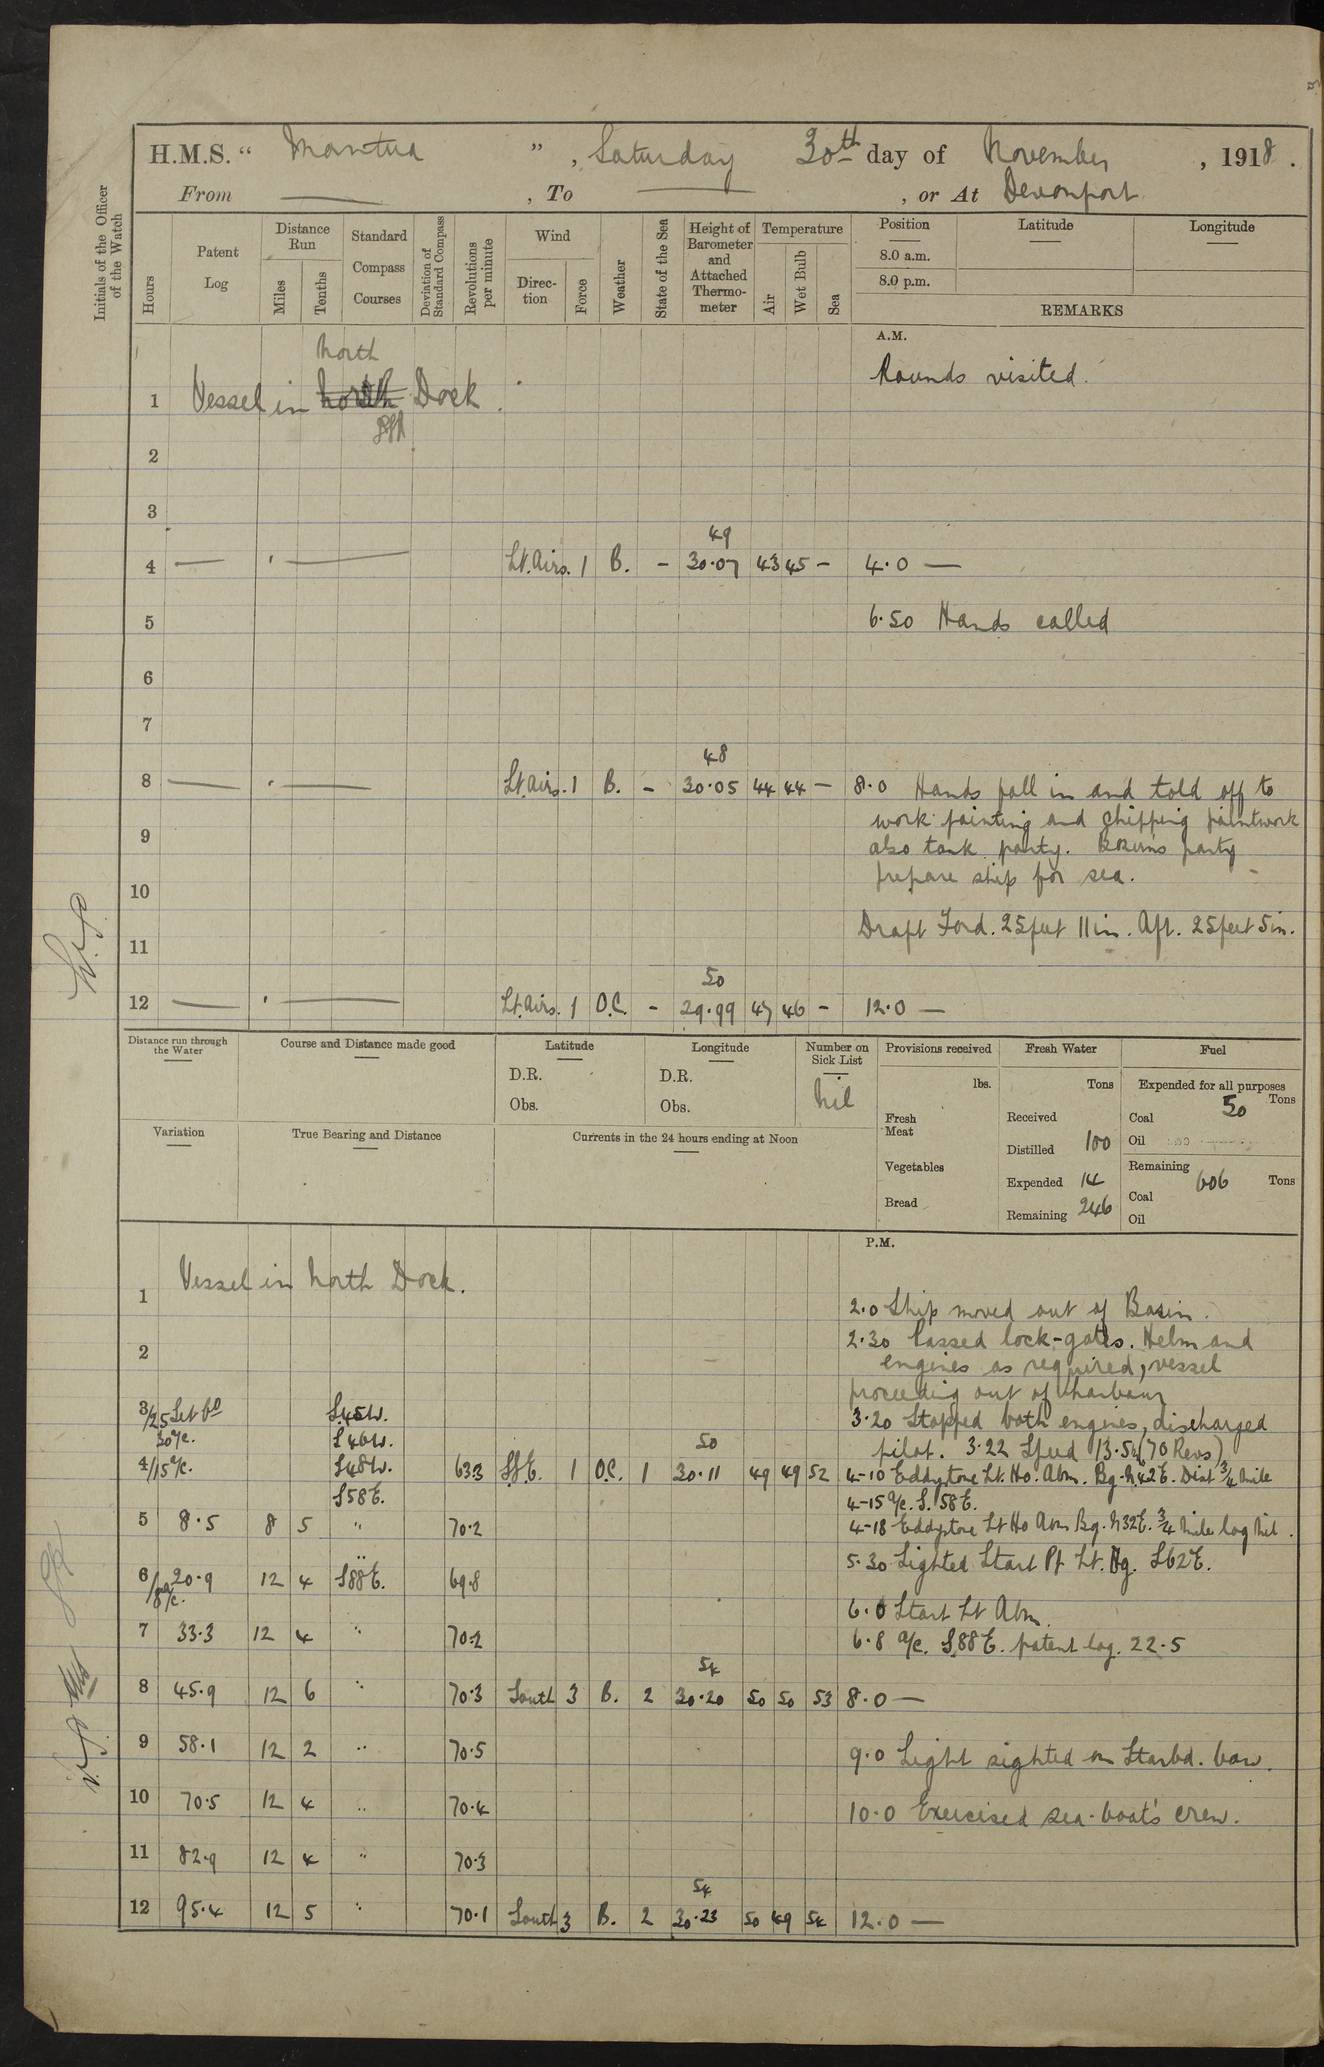 H.M.S. “ Mantua ”, Saturday 30th day of November, 1918.
From ——, To ——, or At Devonport
Initials of the Officer of the Watch
Hours
Patent Log
Distance Run
Miles
Tenths
Standard Compass Courses
Deviation of Standard Compass
Revolutions per minute
Wind
Direction
Force
Weather
State of the Sea
Height of Barometer and Attached Thermometer
Temperature
Air
Wet Bulb
Sea
Position
8.0 a.m.
8.0 p.m.
Latitude
Longitude
REMARKS
A.M.
Rounds visited.
North
1 Vessel in Dock.
2
3
49
4 — — Lt. Airs. 1 B. - 30.07 43 45 - 4.0 —
5 6.50 Hands called
6
7
48
8 — — Lt. Airs. 1 B. - 30.05 44 44 - 8.0 Hands fall in and told off to
9 work: painting and chipping paintwork
also tank party. Bosun's party
10 prepare ship for sea.
11 Draft Ford. 25 feet 11 in. Aft. 25 feet 5 in.
50
12 — — Lt. Airs. 1 O.C. - 29.99 47 46 - 12.0 —
Distance run through the Water
Course and Distance made good
Latitude
D.R.
Obs.
Longitude
D.R.
Obs.
Number on Sick List
Nil
Provisions received
lbs.
Fresh Meat
Vegetables
Bread
Fresh Water
Tons
Received
Distilled 100
Expended 14
Remaining 246
Fuel
Expended for all purposes
Tons
Coal 50
Oil
Remaining
Tons
Coal 606
Oil
Variation
True Bearing and Distance
Currents in the 24 hours ending at Noon
P.M.
1 Vessel in North Dock.
2.0 Ship moved out of Basin.
2 2.30 Passed lock-gates. Helm and
engines as required, vessel
proceeding out of harbour
3/25 Set Co S.45W. 3.20 Stopped both engines, discharged
30 a/c. S.46W. 50 pilot. 3.22 Speed 13.5k (70 Revs)
4/15 a/c. S.48W. 63.3 S.S.E. 1 O.C. 1 30.11 49 49 52 4-10 Eddystone Lt. Ho. Abm. Bg. N.42E. Dist 3/4 mile
S58E. 4-15 a/c. S. 58E.
5 8.5 8 5 " 70.2 4-18 Eddystone Lt Ho Abm Bg. N32E. 3/4 mile log Nil.
5.30 Lighted Start Pt Lt. Bg. S62E.
6/8 a/c. 20.9 12 4 S88E. 69.8
6.0 Start Lt Abm.
7 33.3 12 4 " 70.2 6.8 a/c. S.88E. patent log. 22.5
54
8 45.9 12 6 " 70.3 South 3 B. 2 30.20 50 50 53 8.0 —
9 58.1 12 2 " 70.5 9.0 Light sighted on Starbd. bow.
10 70.5 12 4 " 70.4 10.0 Exercised sea-boat's crew.
11 82.9 12 4 " 70.3
54
12 95.4 12 5 " 70.1 South 3 B. 2 30.23 50 49 54 12.0 —